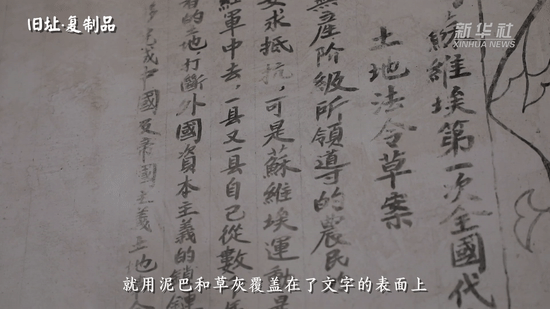 旧址·复制品
新华社
XINHUA NEWS
維埃第一次全國代
土地法令草案
產阶級所領導的農民
求抵抗，可是蘇維埃運動
軍中去，一县又一县自己從數
打斷外國資本主義的鎖
國反帝國主義
就用泥巴和草灰覆盖在了文字的表面上